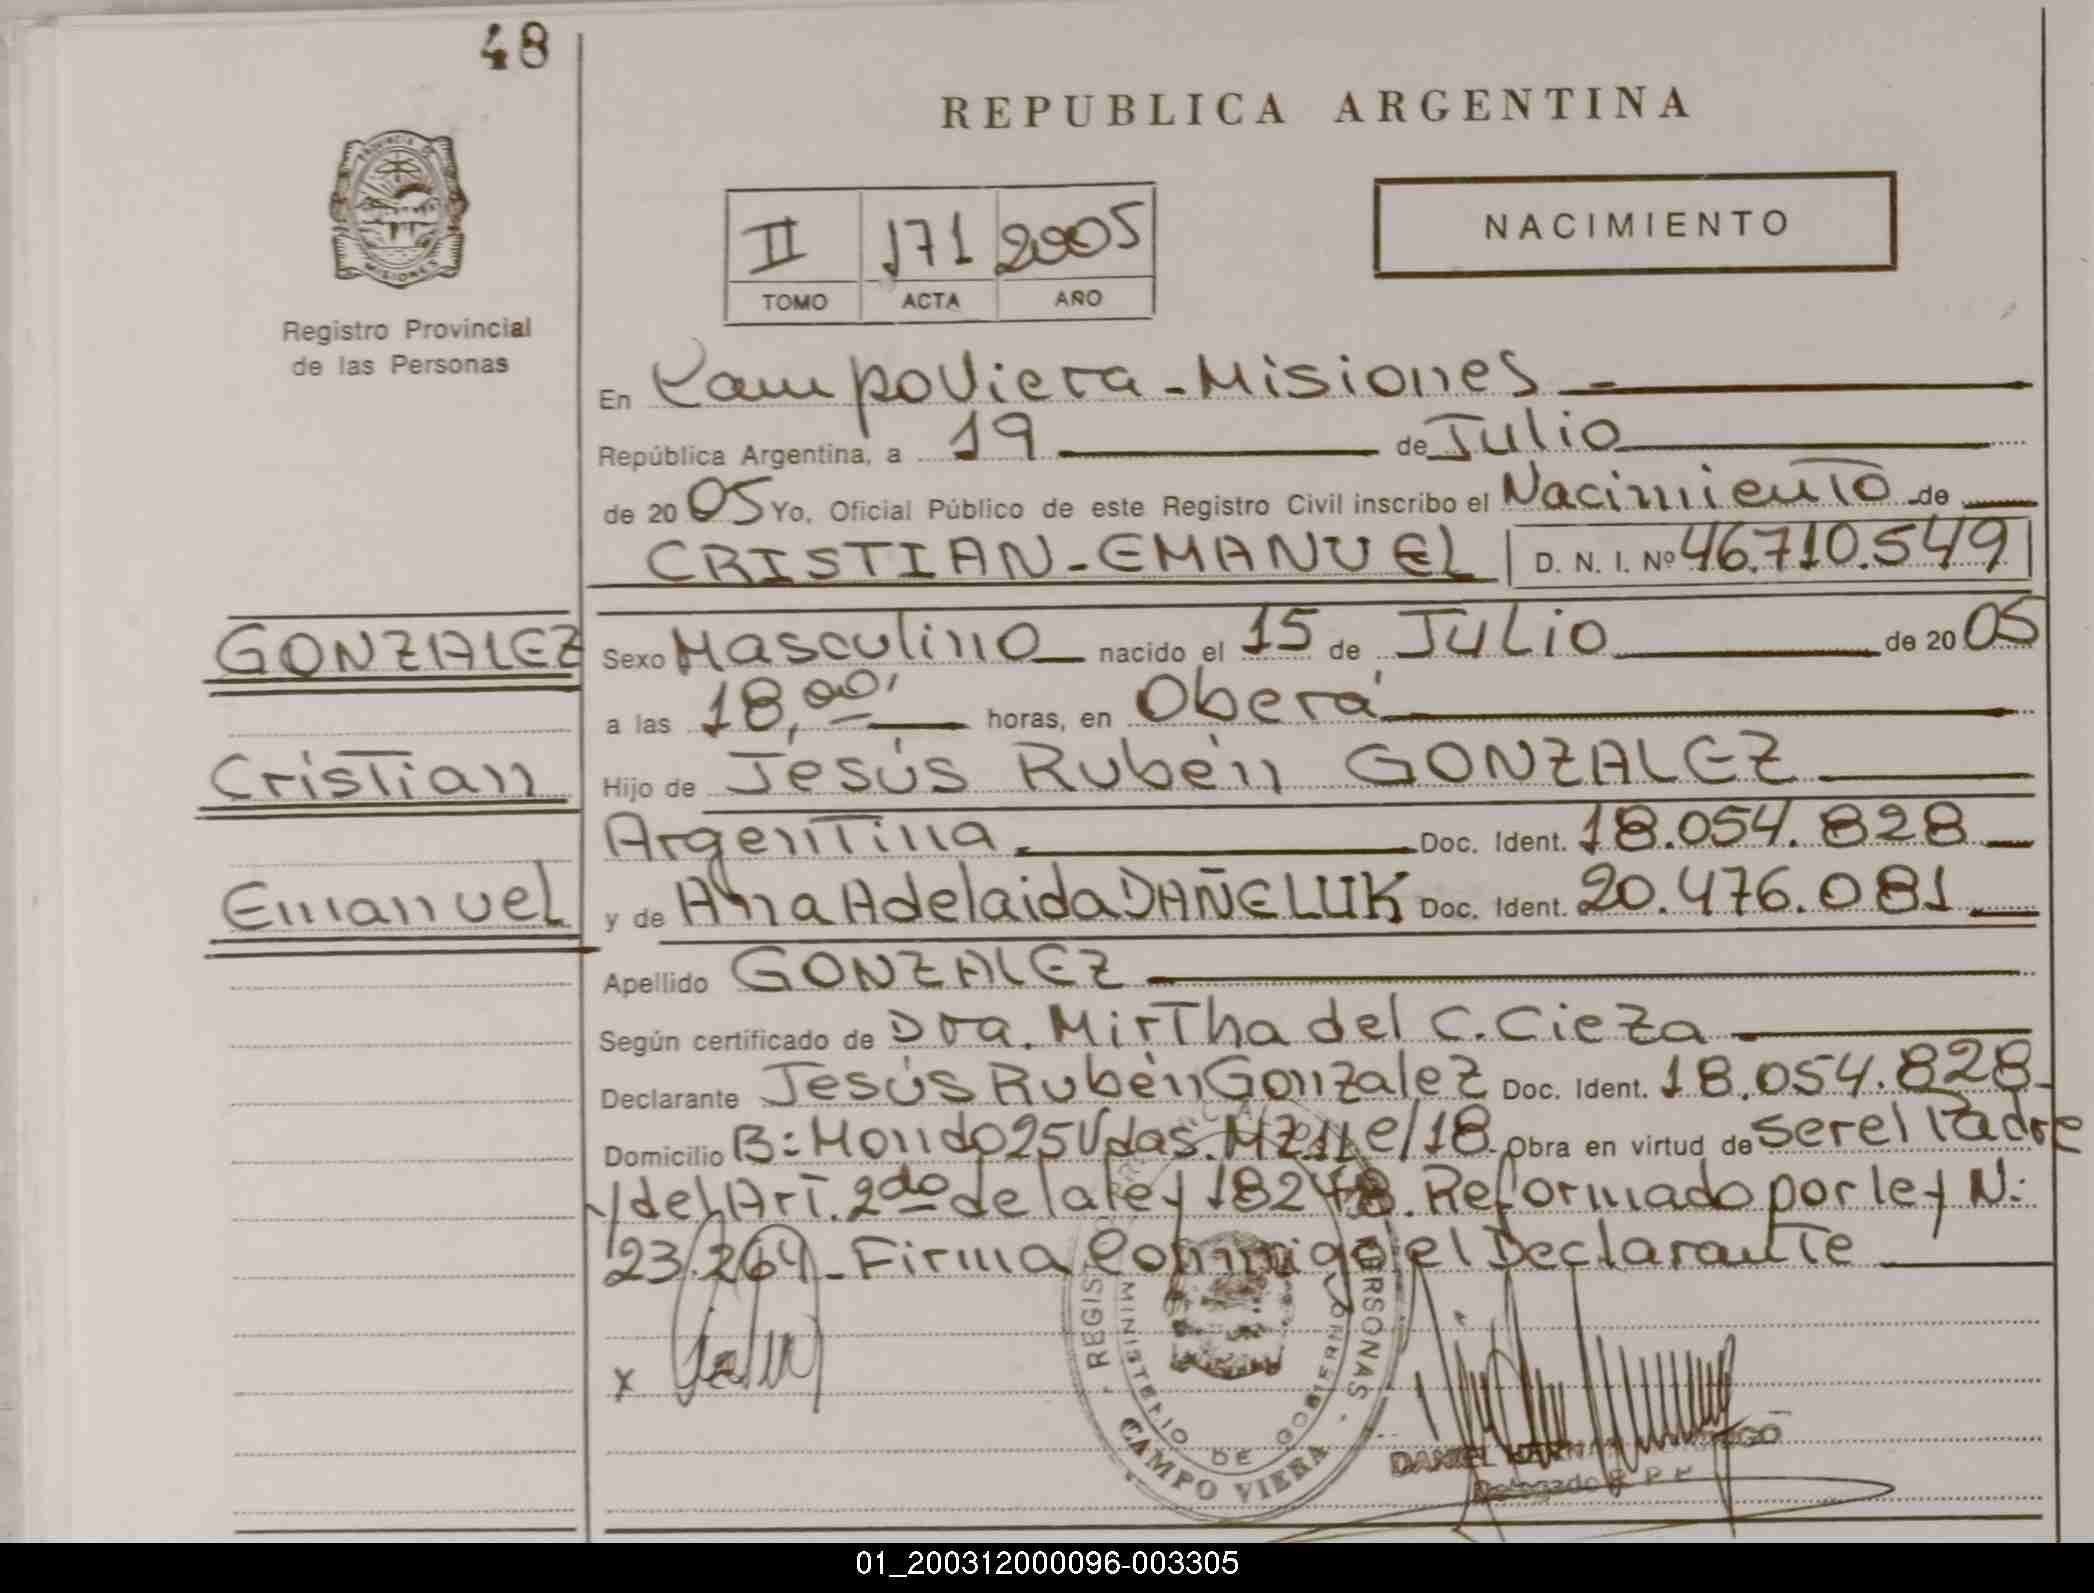 48
REPUBLICA ARGENTINA
PROVINCIA DE
MISIONES
Registro Provincial
de las Personas
II 171 2005
TOMO ACTA AÑO
NACIMIENTO
En Campo Viera - Misiones
República Argentina, a 19 de Julio
de 2005 Yo, Oficial Público de este Registro Civil inscribo el Nacimiento de
CRISTIAN - EMANUEL D. N. I. Nº 46.710.549
GONZALEZ
Sexo Masculino nacido el 15 de Julio de 2005
a las 18,00 horas, en Oberá
Cristian
Hijo de Jesús Rubén GONZALEZ
Argentina. Doc. Ident. 18.054.828
Emanuel
y de Ana Adelaida DAÑELUK Doc. Ident. 20.476.081
Apellido GONZALEZ
Según certificado de Dra. Mirtha del C. Cieza
Declarante Jesús Rubén Gonzalez Doc. Ident. 18.054.828
Domicilio B: Mondo 25 Vdas. Mz 11 e/18. Obra en virtud de ser el Padre
y del Art. 2do de la ley 18248. Reformado por ley N:
23.264 - Firma Conmigo el Declarante
x
REGIS PERSONAS
MINISTERIO DE GOBIERNO
CAMPO VIERA
DANIEL
Delegado R. P. P.
01_200312000096-003305